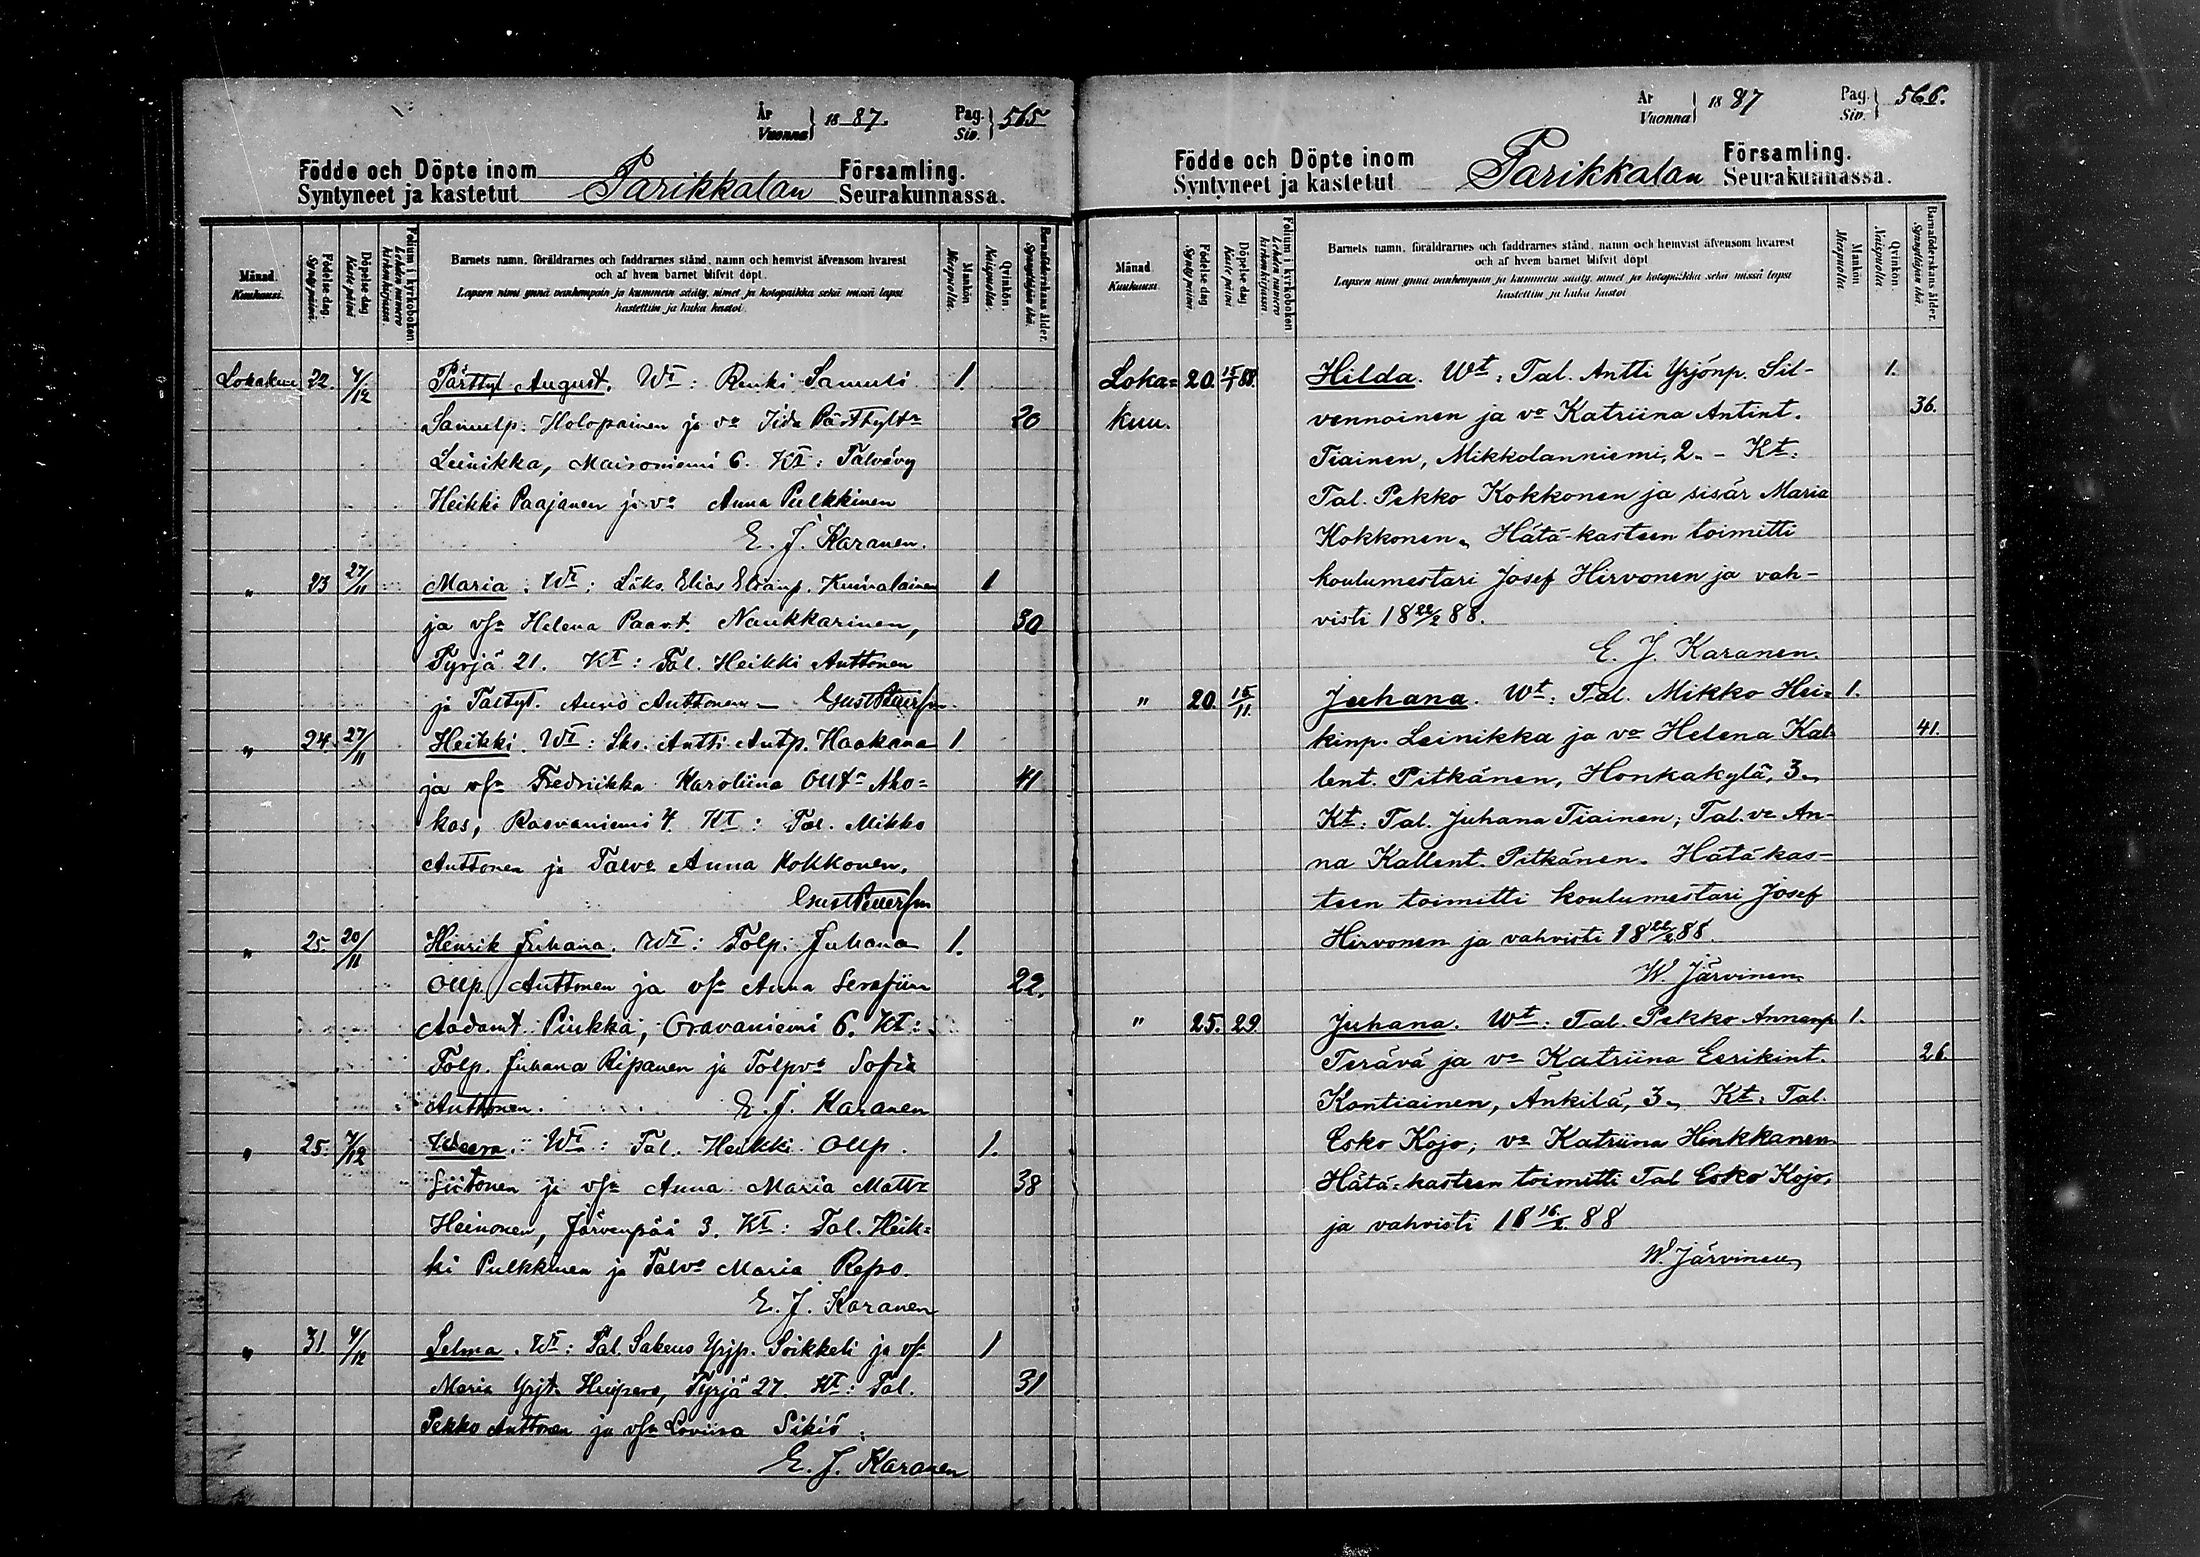 År
Vuonna } 18 87. Pag. Siv. } 565
Födde och Döpte inom Parikkalan Församling.
Syntyneet ja kastetut Seurakunnassa.
Månad.
Kuukausi.
Födelse dag.
Synty päivä.
Döpelse dag
Kaste päivä
Folium i kyrkoboken
Lehden numero kirkonkirjassa.
Barnets namn, föräldrarnes och faddrarnes stånd, namn och hemvist äfvensom hvarest
och af hvem barnet blifvit döpt.
Lapsen nimi ynnä vanhempain ja kummein sääty, nimet ja kotopaikka sekä missä lapsi
kastettiin ja kuka kastoi.
Mankön
Miespuolia.
Qvinkön.
Naispuolia.
Barnaföderskans ålder.
Synnyttäjän ikä.
Lokakuu 22. 4/12 Pärttyl August. Wt: Renki Samuli 1
Samulp. Holopainen ja vo Iida Pärttylt. 20
Leinikka, Maironiemi 6. Kt: Talvävy
Heikki Paajanen ja vo Anna Pulkkinen
E. J. Karanen.
" 23 27/11 Maria. Wt: Löks. Elias Eliamp. Kuivalainen 1
ja vsa Helena Paavt. Naukkarinen, 30
Tyrjä 21. Kt: Tal. Heikki Anttonen
ja Taltyt. Anttonen
" 24. 27/11 Heikki. Wt: Lks. Antti Antp. Haakana 1
ja vsa Fredriikka Karoliina Ollt. Aho= 41
kas, Rasvaniemi 4 Kt: Tal. Mikko
Anttonen ja Talvo Anna Kokkonen.
" 25. 20/11 Henrik Juhana. Wt: Tolp. Juhana 1.
Ollp. Anttonen ja vsa Anna Serafiina 22.
Aadamt Piukka, Oravaniemi 6. Kt:
Tolp. Juhana Ripanen ja Tolpvo Sofia
Anttonen. E. J. Karanen
" 25. 4/12 Weera. Wt: Tal. Heikki Ollp. 1.
Siitonen ja vsa Anna Maria Matt. 38
Heinonen, Järvenpää 3. Kt: Tal. Heik=
ki Pulkkinen ja Talvo Maria Repo.
E. J. Karanen
" 31. 4/12 Selma. Wt: Tal. Sakeus Yrjp. Soikkeli ja vsa 1
Maria Yrjt. Tyrjä 27. Kt: Tal. 31
Pekko Anttonen ja vsa Loviisa Sikiö.
E. J. Karanen
År
Vuonna } 18 87 Pag. Siv. } 566.
Födde och Döpte inom Parikkalan Församling.
Syntyneet ja kastetut Seurakunnassa.
Månad
Kuukausi.
Födelse dag
Synty päivä
Döpelse dag.
Kaste päivä
Folium i kyrkoboken
Lehden numero kirkonkirjassa
Barnets namn, föräldrarnes och faddrarnes stånd, namn och hemvist äfvensom hvarest
och af hvem barnet blifvit döpt
Lapsen nimi ynnä vanhempain ja kummein sääty, nimet ja kotopaikka sekä missä lapsi
kastettiin ja kuka kastoi
Mankön
Miespuolia.
Qvinkön.
Naispuolia.
Barnaföderskans ålder.
Synnyttäjän ikä.
Loka= 20. 15/1 88. Hilda. Wt: Tal. Antti Yrjönp. Sil- 1.
kuu. vennoinen ja vo Katriina Antint. 36.
Tiainen, Mikkolanniemi, 2. - Kt:
Tal. Pekko Kokkonen ja sisär Maria
Kokkonen. Hätä-kasteen toimitti
koulumestari Josef Hirvonen ja vah-
visti 18 22/2 88.
E. J. Karanen.
" 20. 15/11. Juhana. Wt: Tal. Mikko Hei= 1.
kinp. Leinikka ja vo Helena Kal= 41.
lent. Pitkänen, Honkakylä, 3.
Kt: Tal. Juhana Tiainen; Tal. vo An-
na Kallent. Pitkänen. Hätäkas-
teen toimitti koulumestari Josef
Hirvonen ja vahvisti 18 22/2 88.
W. Järvinen.
" 25. 29 Juhana. Wt: Tal. Pekko Annanp 1.
Terävä ja vo Katriina Eerikint. 26.
Kontiainen, Änkilä, 3. Kt: Tal.
Esko Kojo; vo Katriina Hinkkanen.
Hätä-kasteen toimitti Tal Esko Kojo,
ja vahvisti 18 16/2 88
W. Järvinen